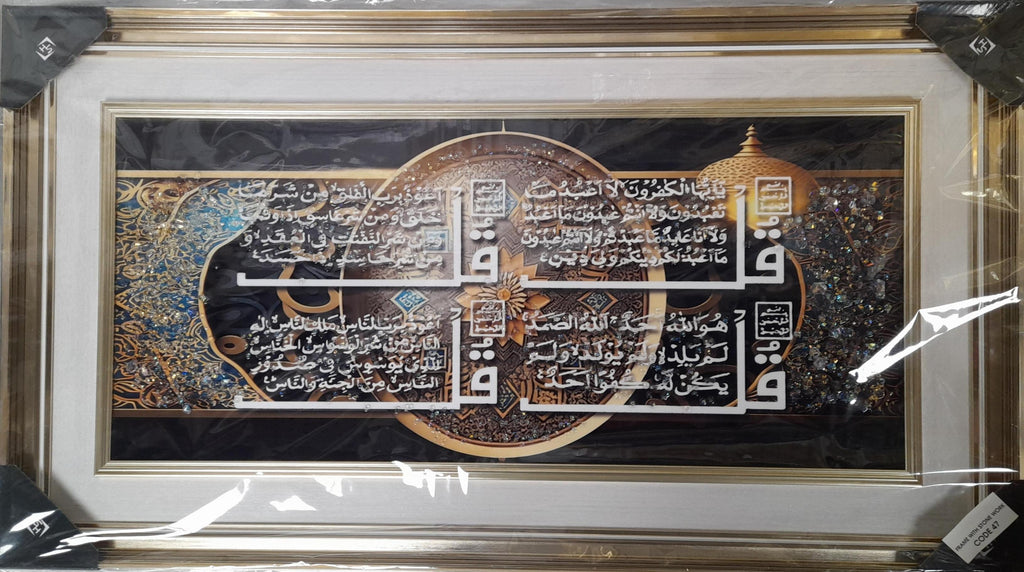 قل
يأيها الكفرون لا أعبد ما
تعبدون ولا أنتم عبدون ما أعبد
ولا أنا عابد ما عبدتم ولا أنتم عبدون
ما أعبد لكم دينكم ولي دين
قل
أعوذ برب الفلق من شر ما
خلق ومن شر غاسق إذا وقب
ومن شر النفثت في العقد و
من شر حاسد إذا حسد
قل
هو الله أحد الله الصمد
لم يلد ولم يولد ولم
يكن له كفوا أحد
قل
أعوذ برب الناس ملك الناس إله
الناس من شر الوسواس الخناس
الذي يوسوس في صدور
الناس من الجنة والناس
FRAME WITH STONE WORK
CODE 47